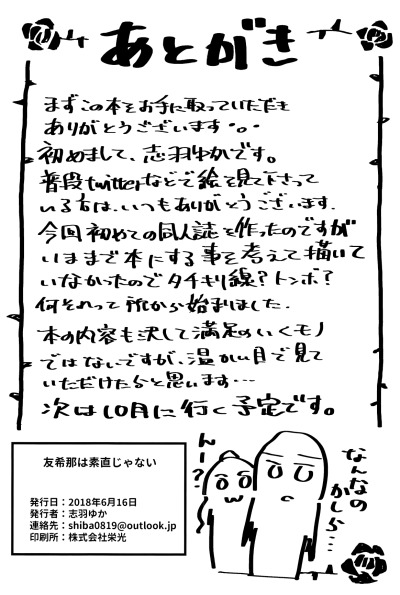 あとがき
まずこの本をお手に取っていただき
ありがとうございます・。・
初めまして、志羽ゆかです。
普段twitterなどで絵を見て下さって
いる方は、いつもありがとうございます.
今回初めての同人誌を作ったのですが
いままで本にする事を考えて描いて
いなかったのでタチキリ線?トンボ?
何それって所から始まりました.
本の内容も決して満足のいくモノ
ではないですが、温かい目で見て
いただけたらと思います…
次は10月に行く予定です。
友希那は素直じゃない
発行日：2018年6月16日
発行者：志羽ゆか
連絡先：shiba0819@outlook.jp
印刷所：株式会社栄光
んー?
なんなの
かしら…